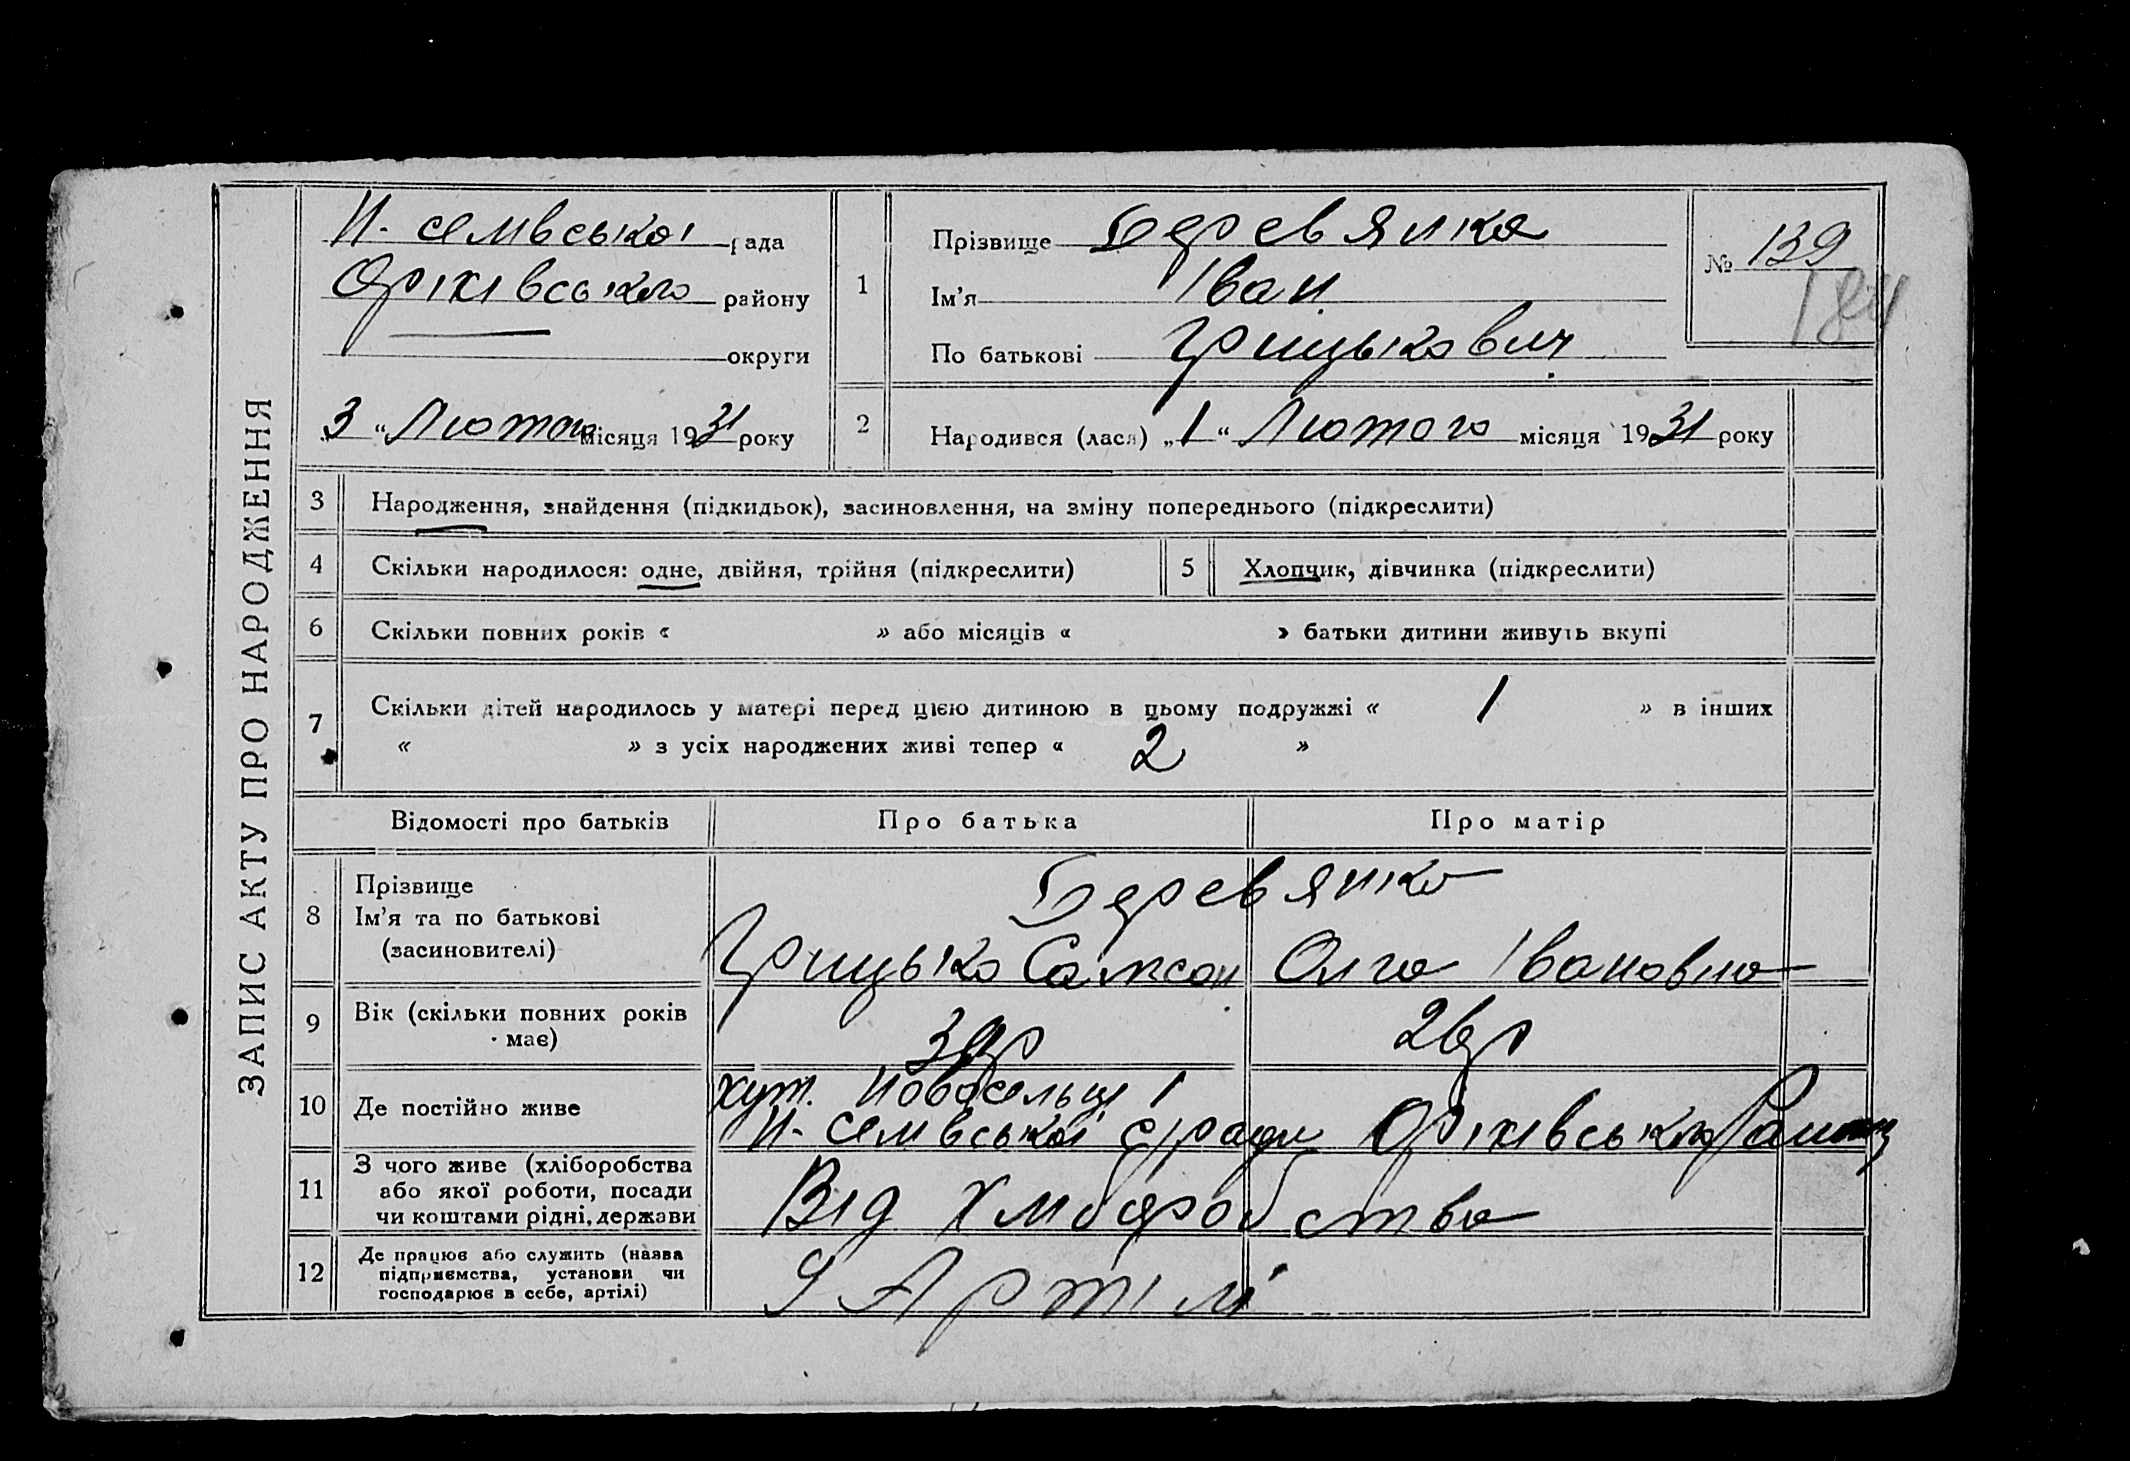 ЗАПИС АКТУ ПРО НАРОДЖЕННЯ
рада
Оріхівського району
округи
3 " Лютого місяця 1931 року
1
Прізвище Деревянко
Ім'я Іван
По батькові Грицькович
№ 139
184
2
Народився (лася) „1“ Лютого місяця 1931 року
3 Народження, знайдення (підкидьок), засиновлення, на зміну попереднього (підкреслити)
4 Скільки народилося: одне, двійня, трійня (підкреслити)
5 Хлопчик, дівчинка (підкреслити)
6 Скільки повних років « » або місяців « » батьки дитини живуть вкупі
7 Скільки дітей народилось у матері перед цією дитиною в цьому подружжі « 1 » в інших
« » з усіх народжених живі тепер « 2 »
Відомості про батьків Про батька Про матір
8
Прізвище
Ім'я та по батькові
(засиновителі)
Деревянко
Грицько Самсон Олга Івановна
9
Вік (скільки повних років
має)
26 р
10 Де постійно живе
хут. Новосельці
сіради Оріхівського Району
11
З чого живе (хліборобства
або якої роботи, посади
чи коштами рідні, держави
Від хліборобства
12
Де працює або служить (назва
підприємства, установи чи
господарює в себе, артілі)
У Артілі